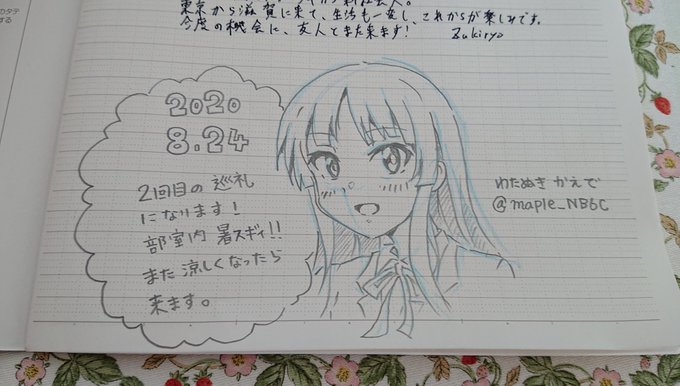 東京から滋賀に来て、生活も一変し、これからが楽しみです。
今度の機会に、友人とまた来ます! Zukiryo
2020
8.24
2回目の巡礼
になります!
部室内 暑スギィ!!
また 涼しくなったら
来ます。
わたぬき かえで
@maple_NB6C